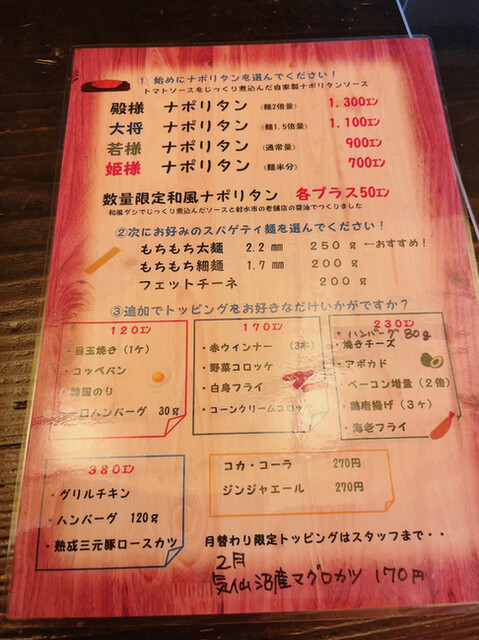 ① 始めにナポリタンを選んでください！
トマトソースをじっくり煮込んだ自家製ナポリタンソース
殿様 ナポリタン (麺2倍量) 1,300エン
大将 ナポリタン (麺1.5倍量) 1,100エン
若様 ナポリタン (通常量) 900エン
姫様 ナポリタン (麺半分) 700エン
数量限定和風ナポリタン 各プラス50エン
和風ダシでじっくり煮込んだソースと射水市の老舗店の醤油でつくりました
②次にお好みのスパゲティ麺を選んでください！
もちもち太麺 2.2㎜ 250g ←おすすめ！
もちもち細麺 1.7㎜ 200g
フェットチーネ 200g
③追加でトッピングをお好きなだけいかがですか？
120エン
・目玉焼き(1ケ)
・コッペパン
・韓国のり
・一口ハンバーグ 30g
170エン
・赤ウインナー (3本)
・野菜コロッケ
・白身フライ
・コーンクリームコロッケ
230エン
・ハンバーグ 80g
・焼きチーズ
・アボカド
・ベーコン増量(2倍)
・鶏唐揚げ(3ケ)
・海老フライ
380エン
・グリルチキン
・ハンバーグ 120g
・熟成三元豚ロースカツ
コカ・コーラ 270円
ジンジャエール 270円
月替わり限定トッピングはスタッフまで・・
2月
気仙沼産マグロカツ 170円